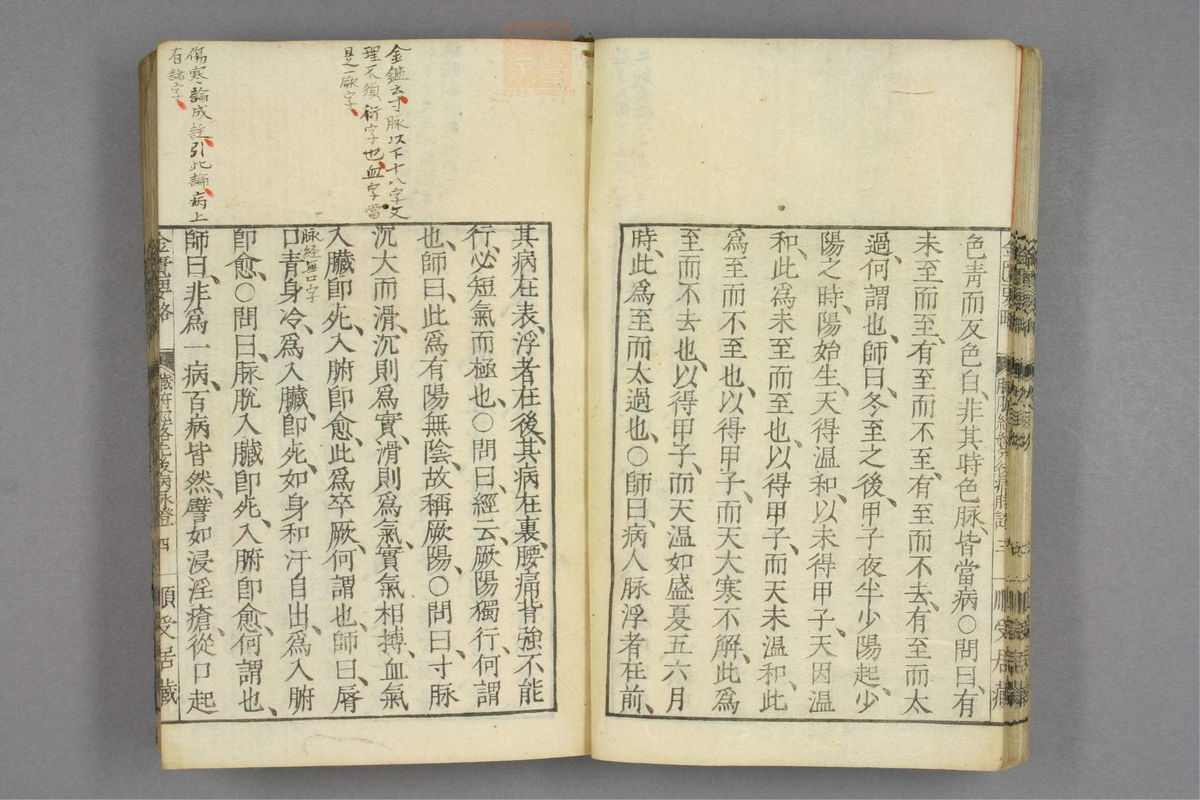 色青而反色白、非其時色脉、皆當病○問曰、有
未至而至、有至而不至、有至而不去、有至而太
過、何謂也、師曰、冬至之後、甲子夜半少陽起、少
陽之時、陽始生、天得温和、以未得甲子、天因温
和、此為未至而至也、以得甲子、而天未温和、此
爲至而不至也、以得甲子、而天大寒不解、此爲
至而不去也、以得甲子、而天温如盛夏五六月
時、此爲至而太過也、○師曰、病人脉浮者在前、
金鑑云寸脉以下十八字文
理不須衍字也、血字當
是厥字、
傷寒論成註、引此論、病上
有諸字、
其病在表、浮者在後、其病在裏、腰痛背強不能
行、必短氣而極也、○問曰、經云、厥陽獨行、何謂
也、師曰、此爲有陽無陰、故稱厥陽、○問曰、寸脉
沉大而滑、沉則爲實、滑則爲氣、實氣相搏、血氣
入臓卽死、入腑卽愈、此爲卒厥、何謂也、師曰、唇
脉經無口字
口青身冷、爲入臓、卽死、如身和汗自出、爲入腑
卽愈、○問曰、脉脫入臓卽死、入腑卽愈、何謂也、
師曰、非爲一病、百病皆然、譬如浸淫瘡、從口起
金匱要略
藏府經絡先後病脉證 四
順受居藏